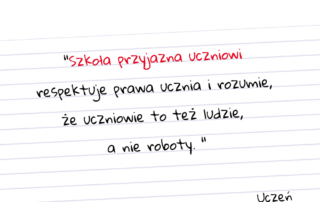 "Szkoła przyjazna uczniowi
respektuje prawa ucznia i rozumie,
że uczniowie to też ludzie,
a nie roboty."
Uczeń